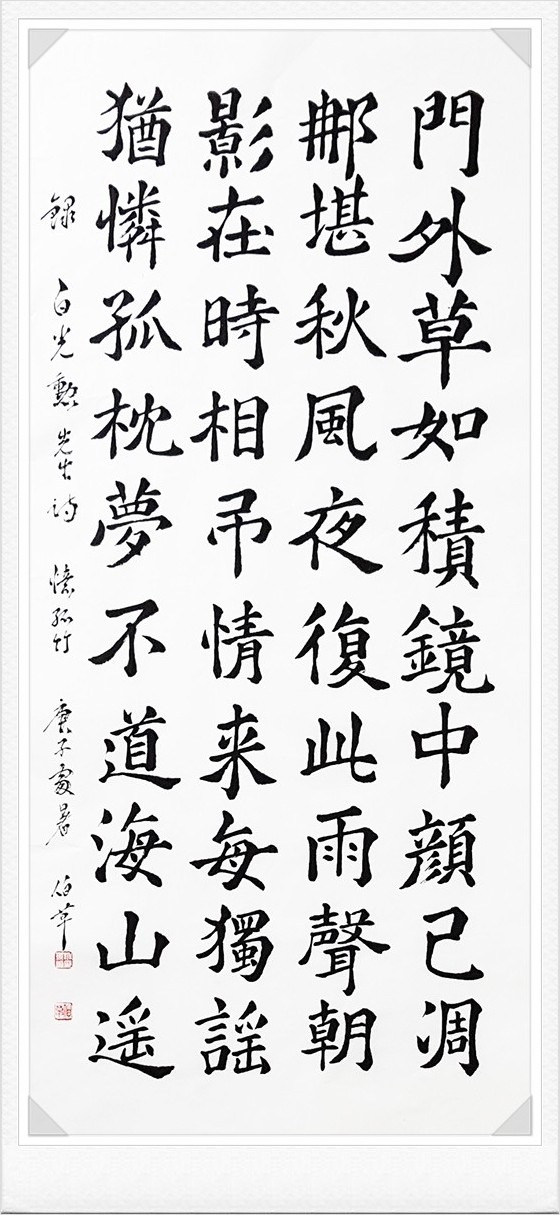 門外草如積鏡中顏已凋
那堪秋風夜復此雨聲朝
影在時相吊情来每獨謡
猶憐孤枕夢不道海山遥
錄 白光勲先生詩 憶孤竹 庚子處暑 伯苹